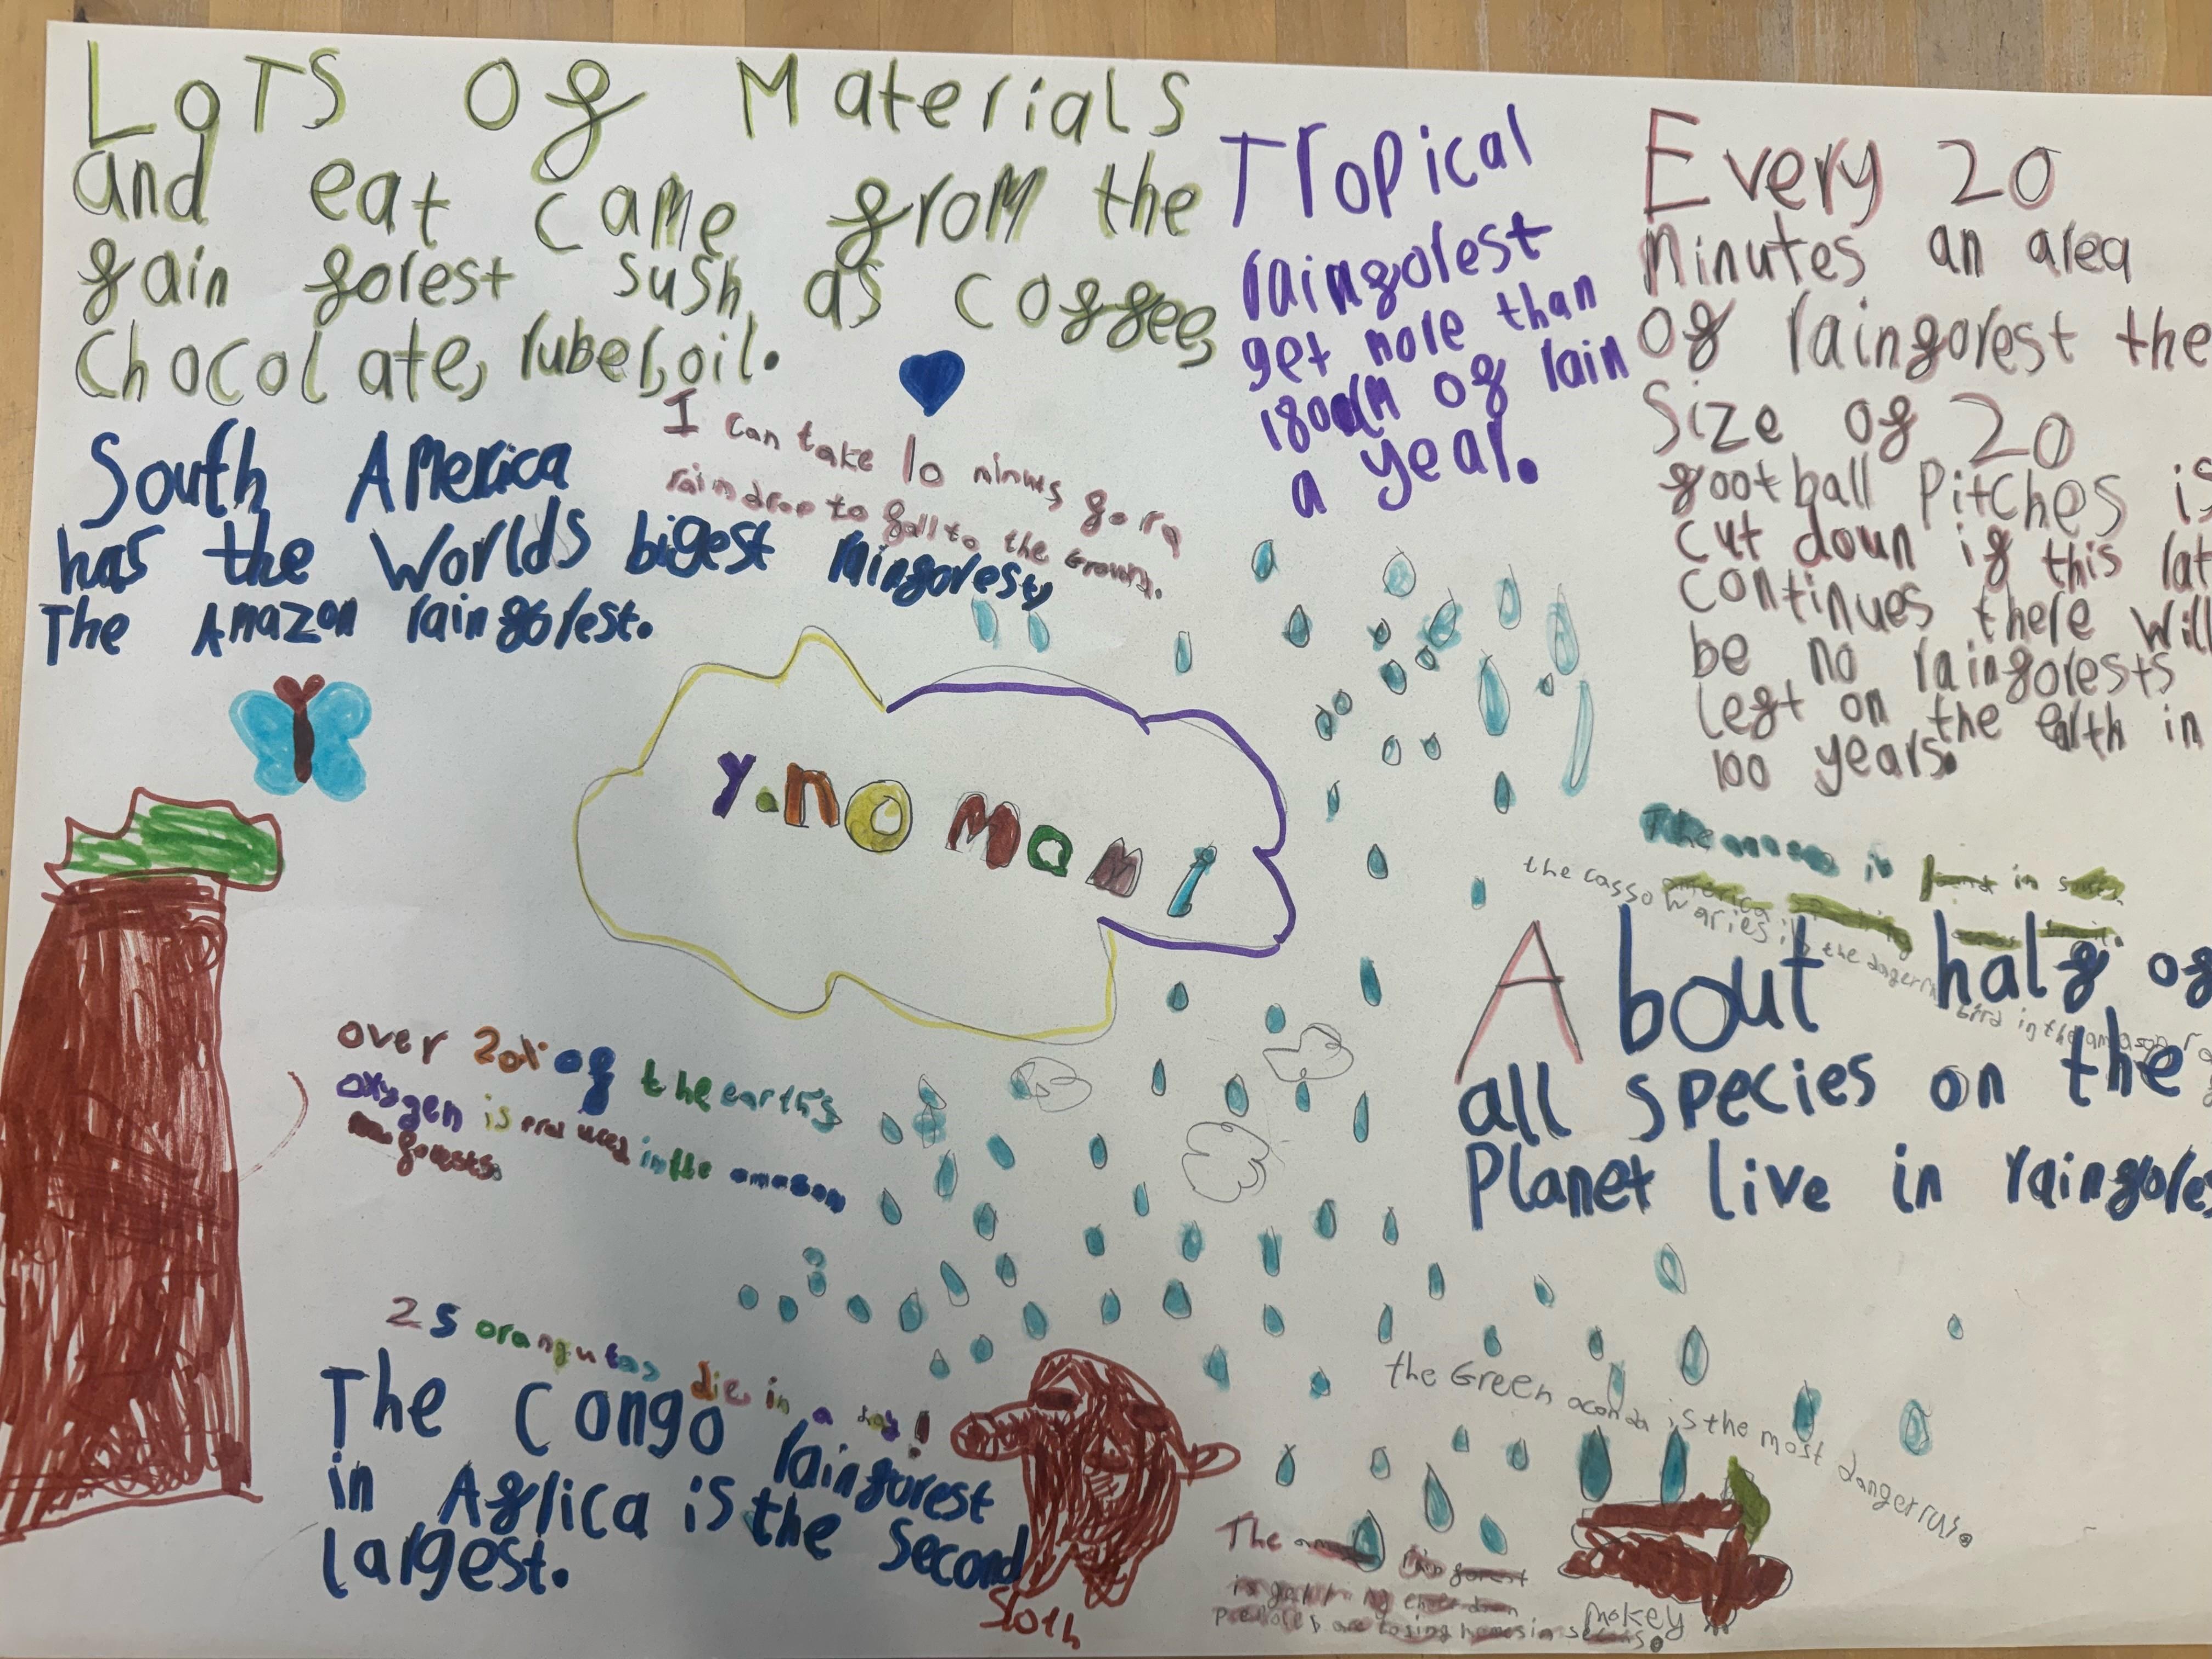 LoTS Of Materials
and eat came from the
fain forest sush as coffee,
chocolate, ruber, oil.
Tropical
rainforest
get more than
180cm of rain
a year.
Every 20
minutes an area
of rainforest the
Size of 20
football Pitches is
cut down if this rat
continues there will
be no rainforests
left on the earth in
100 years.
I can take 10 minuts for a
raindrop to fall to the Ground.
South America
has the Worlds bigest rainforest,
The Amazon rainforest.
y.no mami
The is found in
america
the cassowaries is the dagerrus bird in the amason
About half of
all species on the
Planet live in rainfores
over 20% of the earth's
oxygen is produced in the amason
forests.
25 orangutas die in a day!
The Congo rainforest
in Africa is the second
largest.
Sloth
the Green aconda is the most dangerrus.
The rain forest
is getting
are losing homes in
mokey